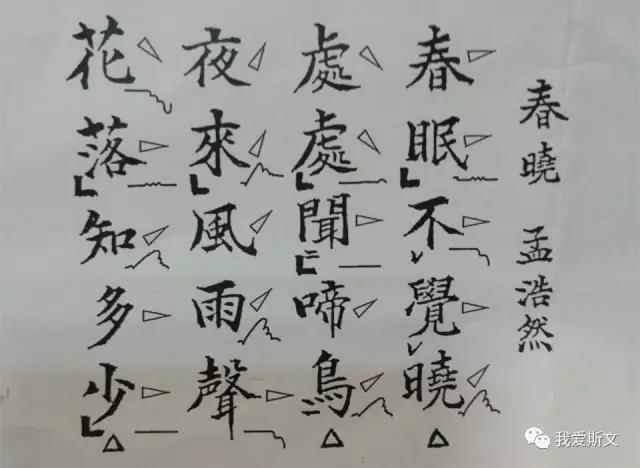 春曉 孟浩然
春眠不覺曉
處處聞啼鳥
夜來風雨聲
花落知多少
我爱斯文